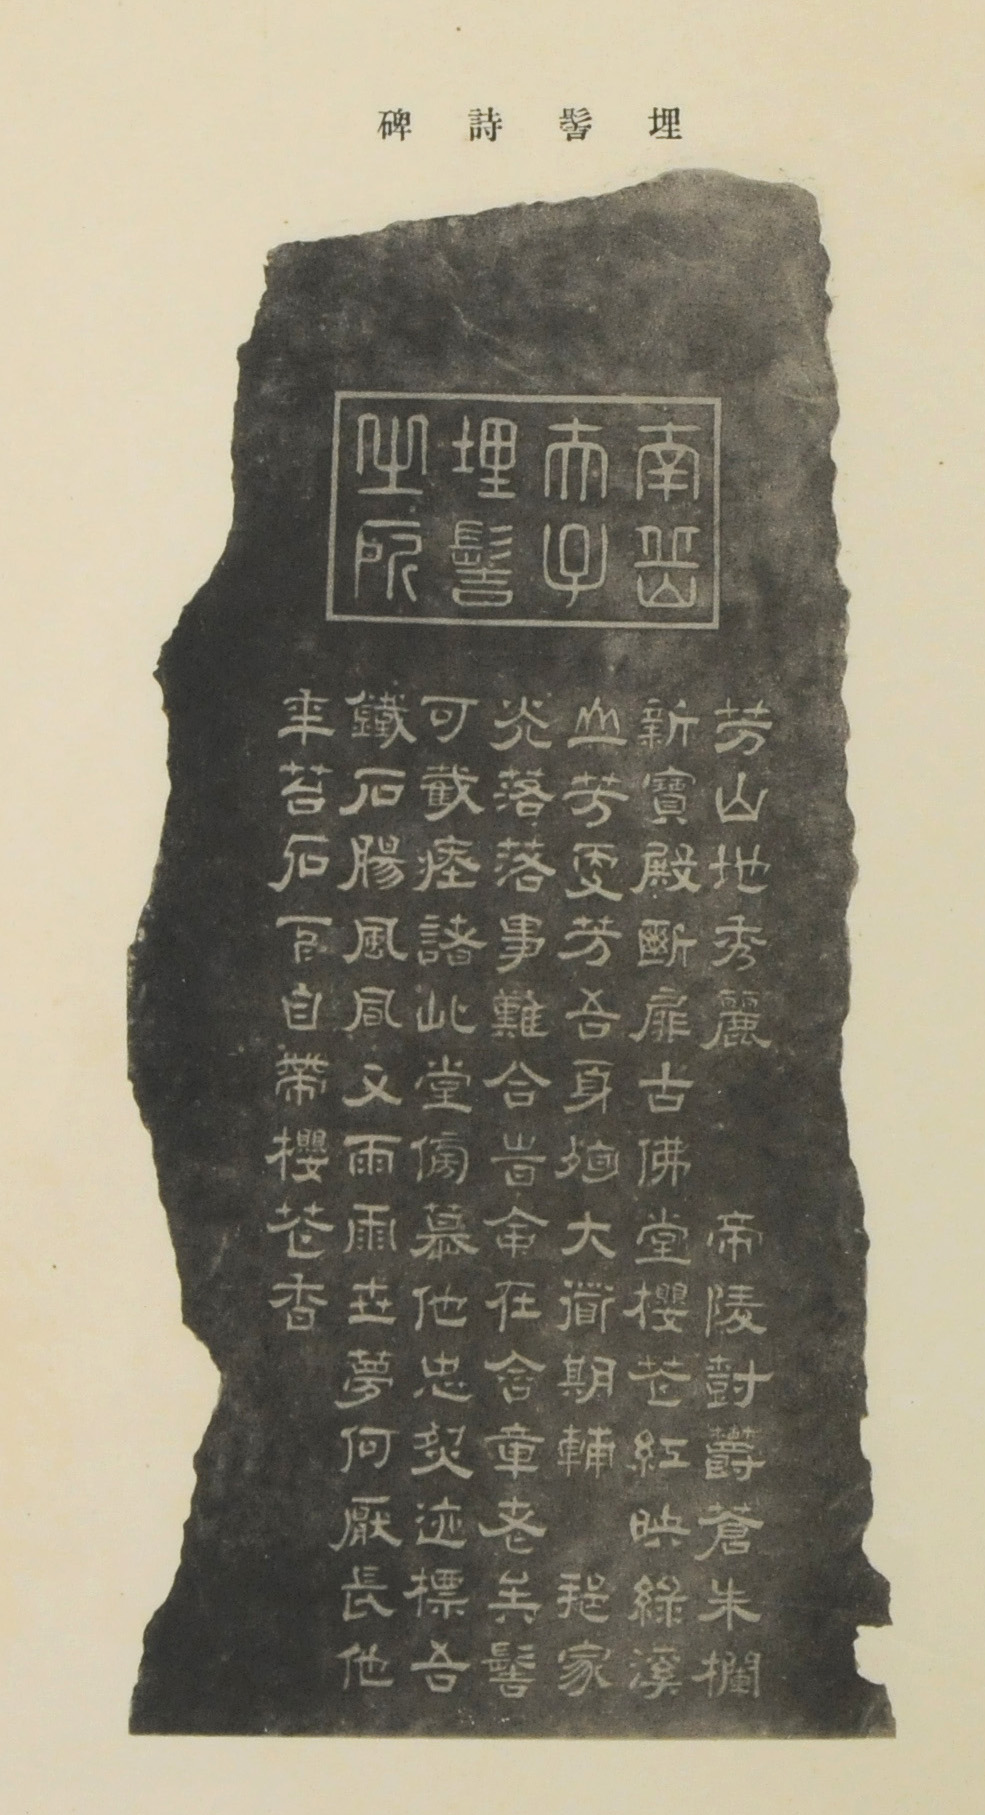 埋髻詩碑
南岳
夫子
埋髻
之
芳山地秀麗　帝陵尌鬱蒼朱欄
新寶殿斷扉古佛堂櫻花紅映綠溪
山芳更芳吾身殉大道期輔　邦家
光落落事難合旹命在含章老矣髻
可截瘞諸此堂傍慕他忠烈迹標吾
鐵石腸風風又雨雨世夢何厭長他
年苔石下自帶櫻花香